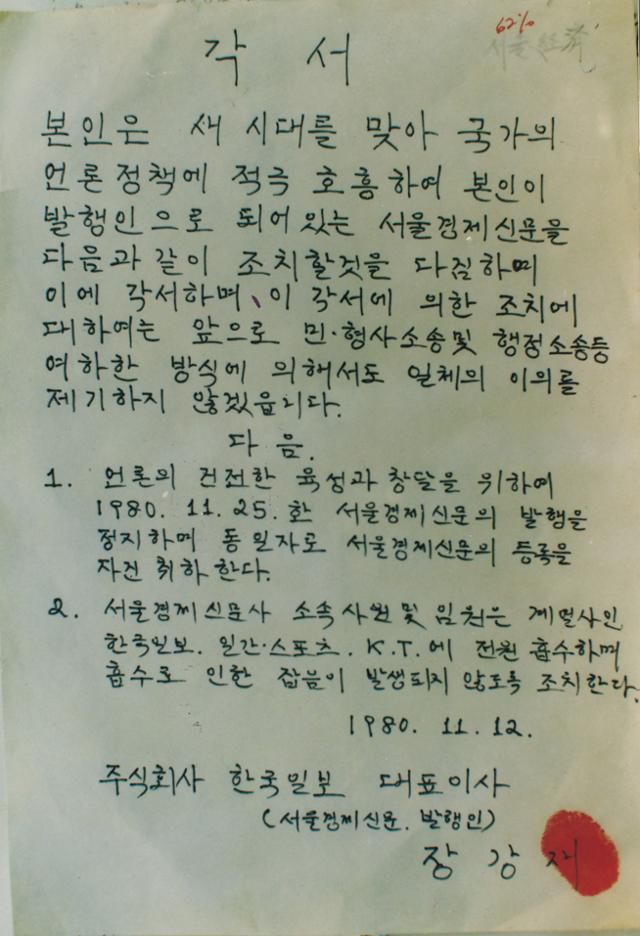 62%
서울經濟
각 서
본인은 새 시대를 맞아 국가의
언론정책에 적극 호흥하여 본인이
발행인으로 되어있는 서울경제신문을
다음과 같이 조치할것을 다짐하며
이에 각서하며, 이 각서에 의한 조치에
대하여는 앞으로 민·형사소송및 행정소송등
여하한 방식에 의해서도 일체의 이의를
제기하지 않겠읍니다.
다 음.
1. 언론의 건전한 육성과 창달을 위하여
1980. 11. 25. 화 서울경제신문의 발행을
정지하며 동 일자로 서울경제신문의 등록을
자진 취하 한다.
2. 서울경제신문사 소속사원및 임원은 계열사인
한국일보. 일간·스포츠. K.T.에 전원 흡수하며
흡수로 인한 잡음이 발생되지 않도록 조치한다.
1980. 11. 12.
주식회사 한국일보 대표이사
(서울경제신문. 발행인)
장 강 재